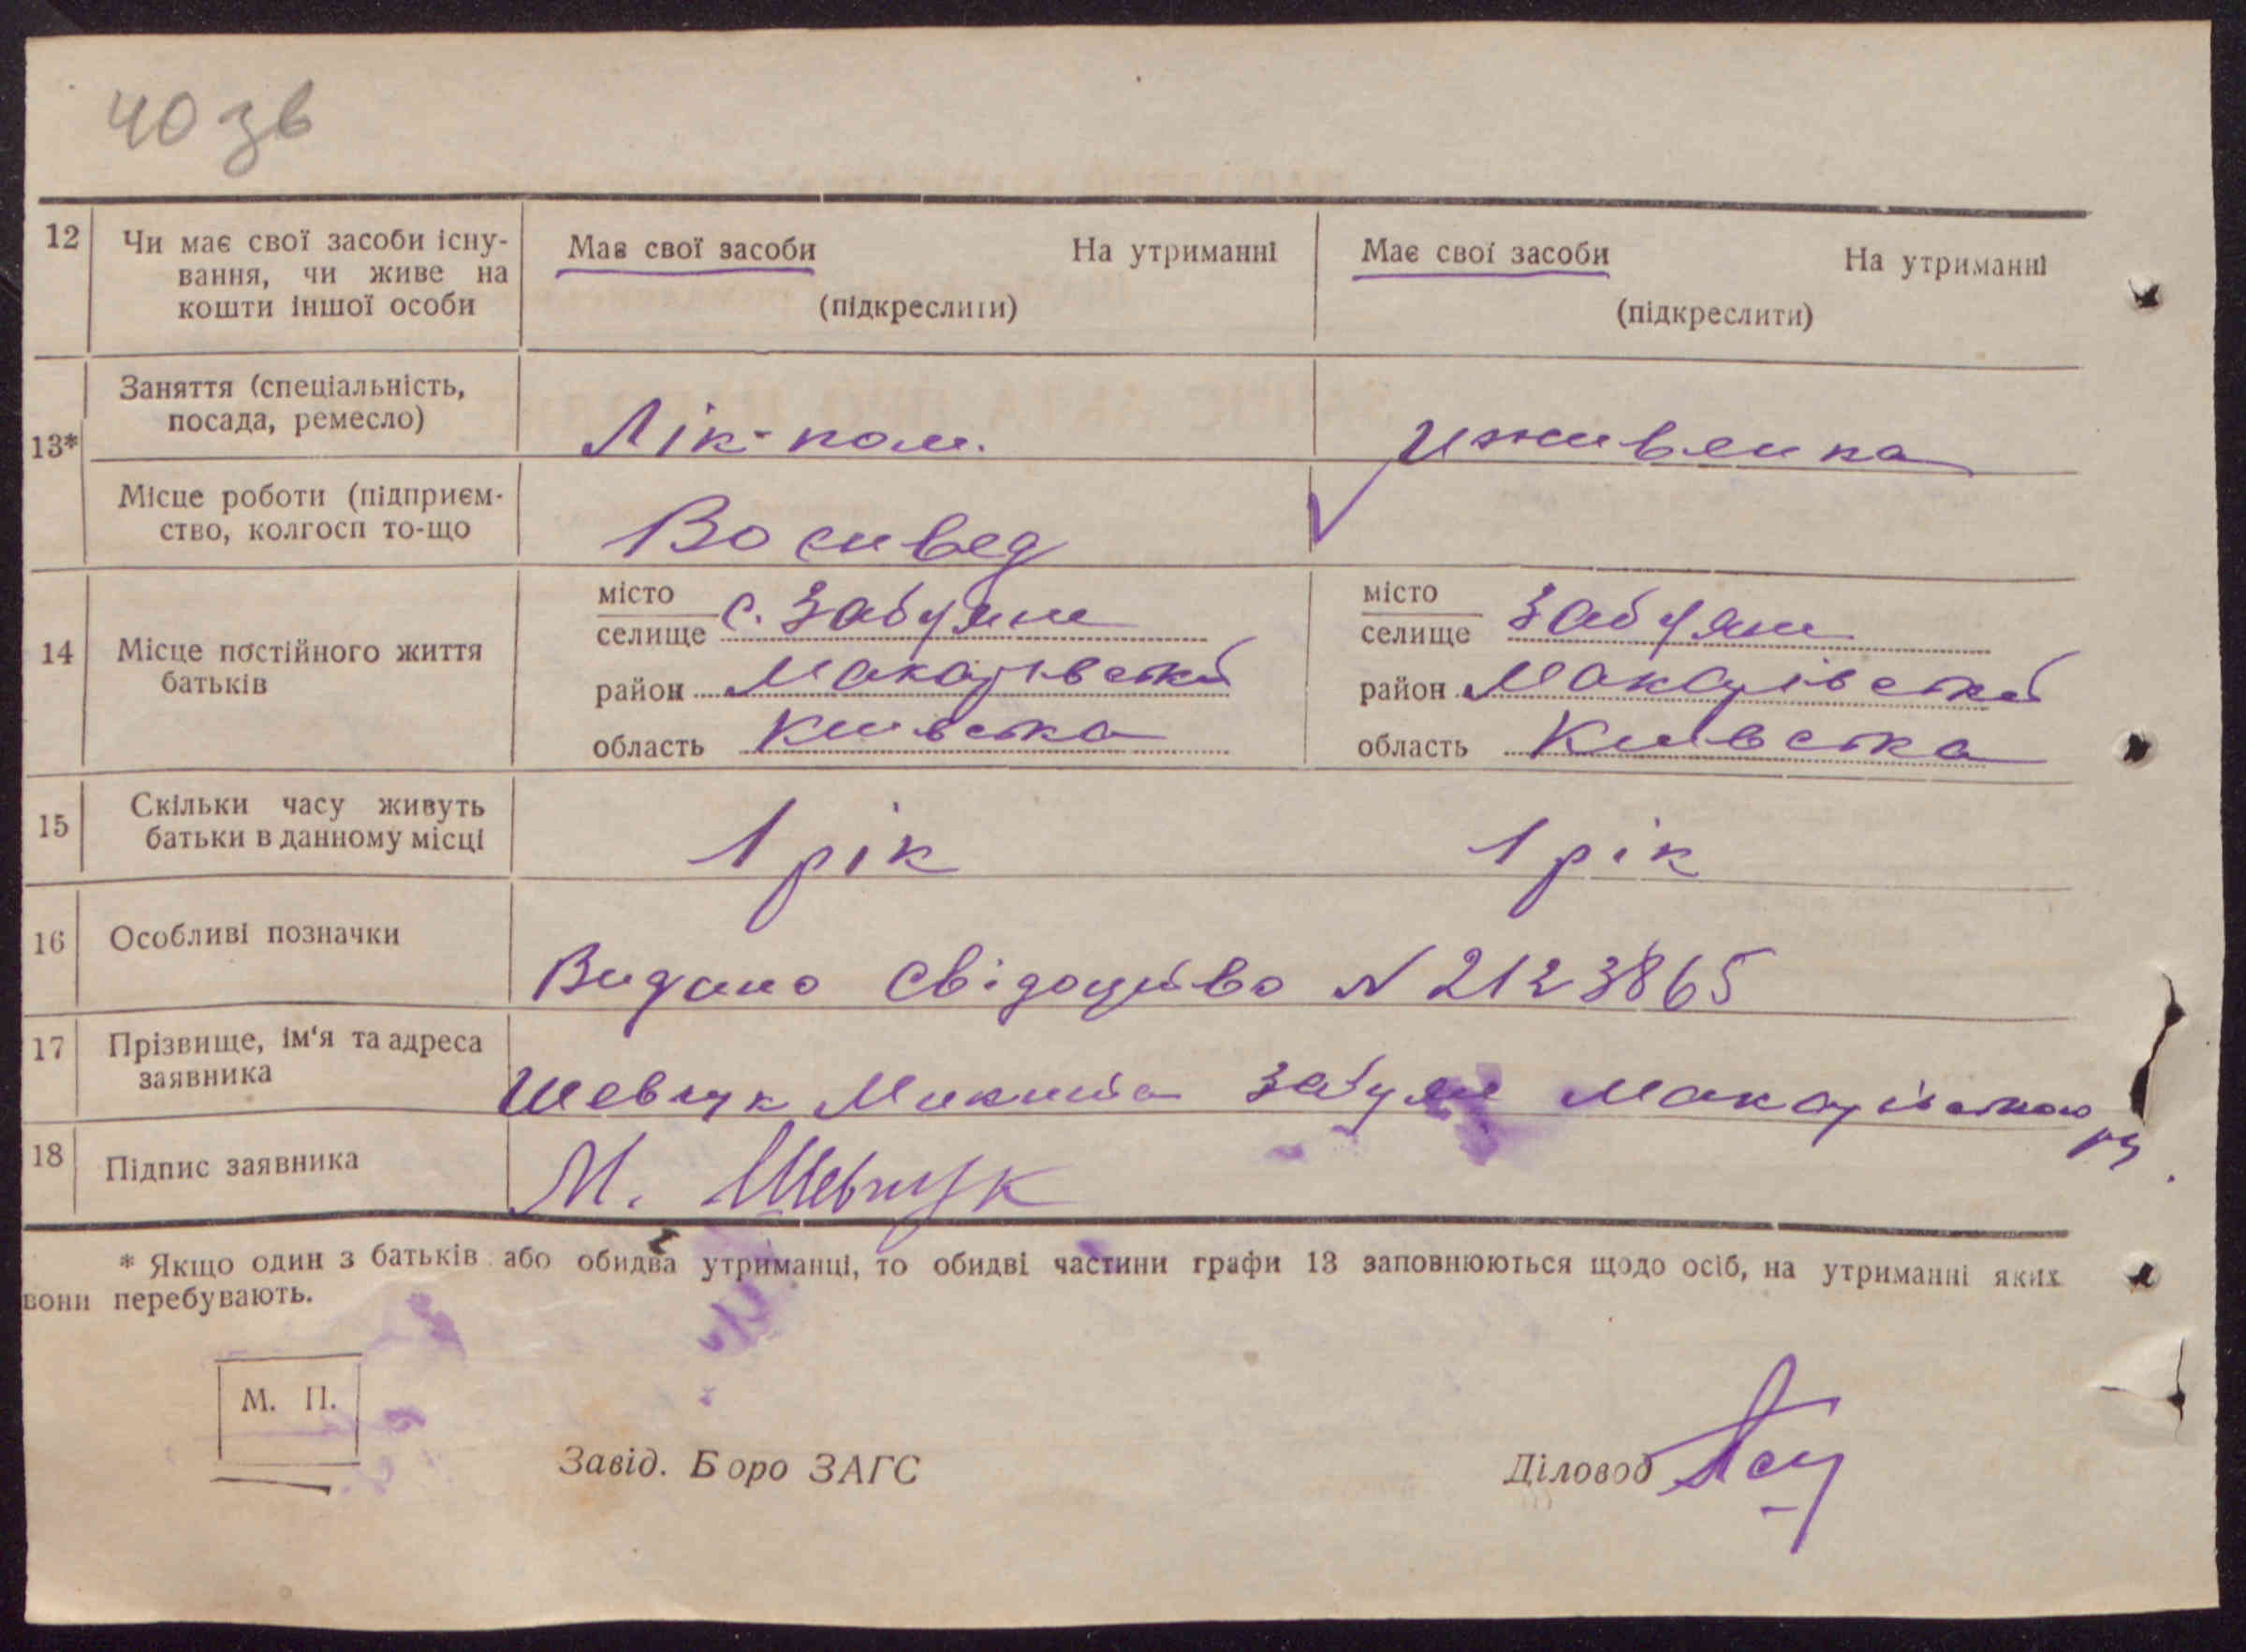 40 зв
12 Чи має свої засоби існу-
вання, чи живе на
кошти іншої особи
Має свої засоби На утриманні
(підкреслити)
Має свої засоби На утриманні
(підкреслити)
13*
Заняття (спеціальність,
посада, ремесло)
Лік-пом.
Утриманка
Місце роботи (підприєм-
ство, колгосп то-що
14 Місце постійного життя
батьків
місто
селище с. Забуяння
район Макарівський
область Київська
місто
селище Забуяння
район Макарівський
область Київська
15 Скільки часу живуть
батьки в данному місці
1 рік 1 рік
16 Особливі позначки
Видано свідоцтво N 2123865
17 Прізвище, ім'я та адреса
заявника
Шевчук Микита Забуян Макарівського
р-н.
18 Підпис заявника
М. Шевчук
* Якщо один з батьків або обидва утриманці, то обидві частини графи 13 заповнюються щодо осіб, на утриманні яких
вони перебувають.
М. П.
Завід. Боро ЗАГС
Діловод